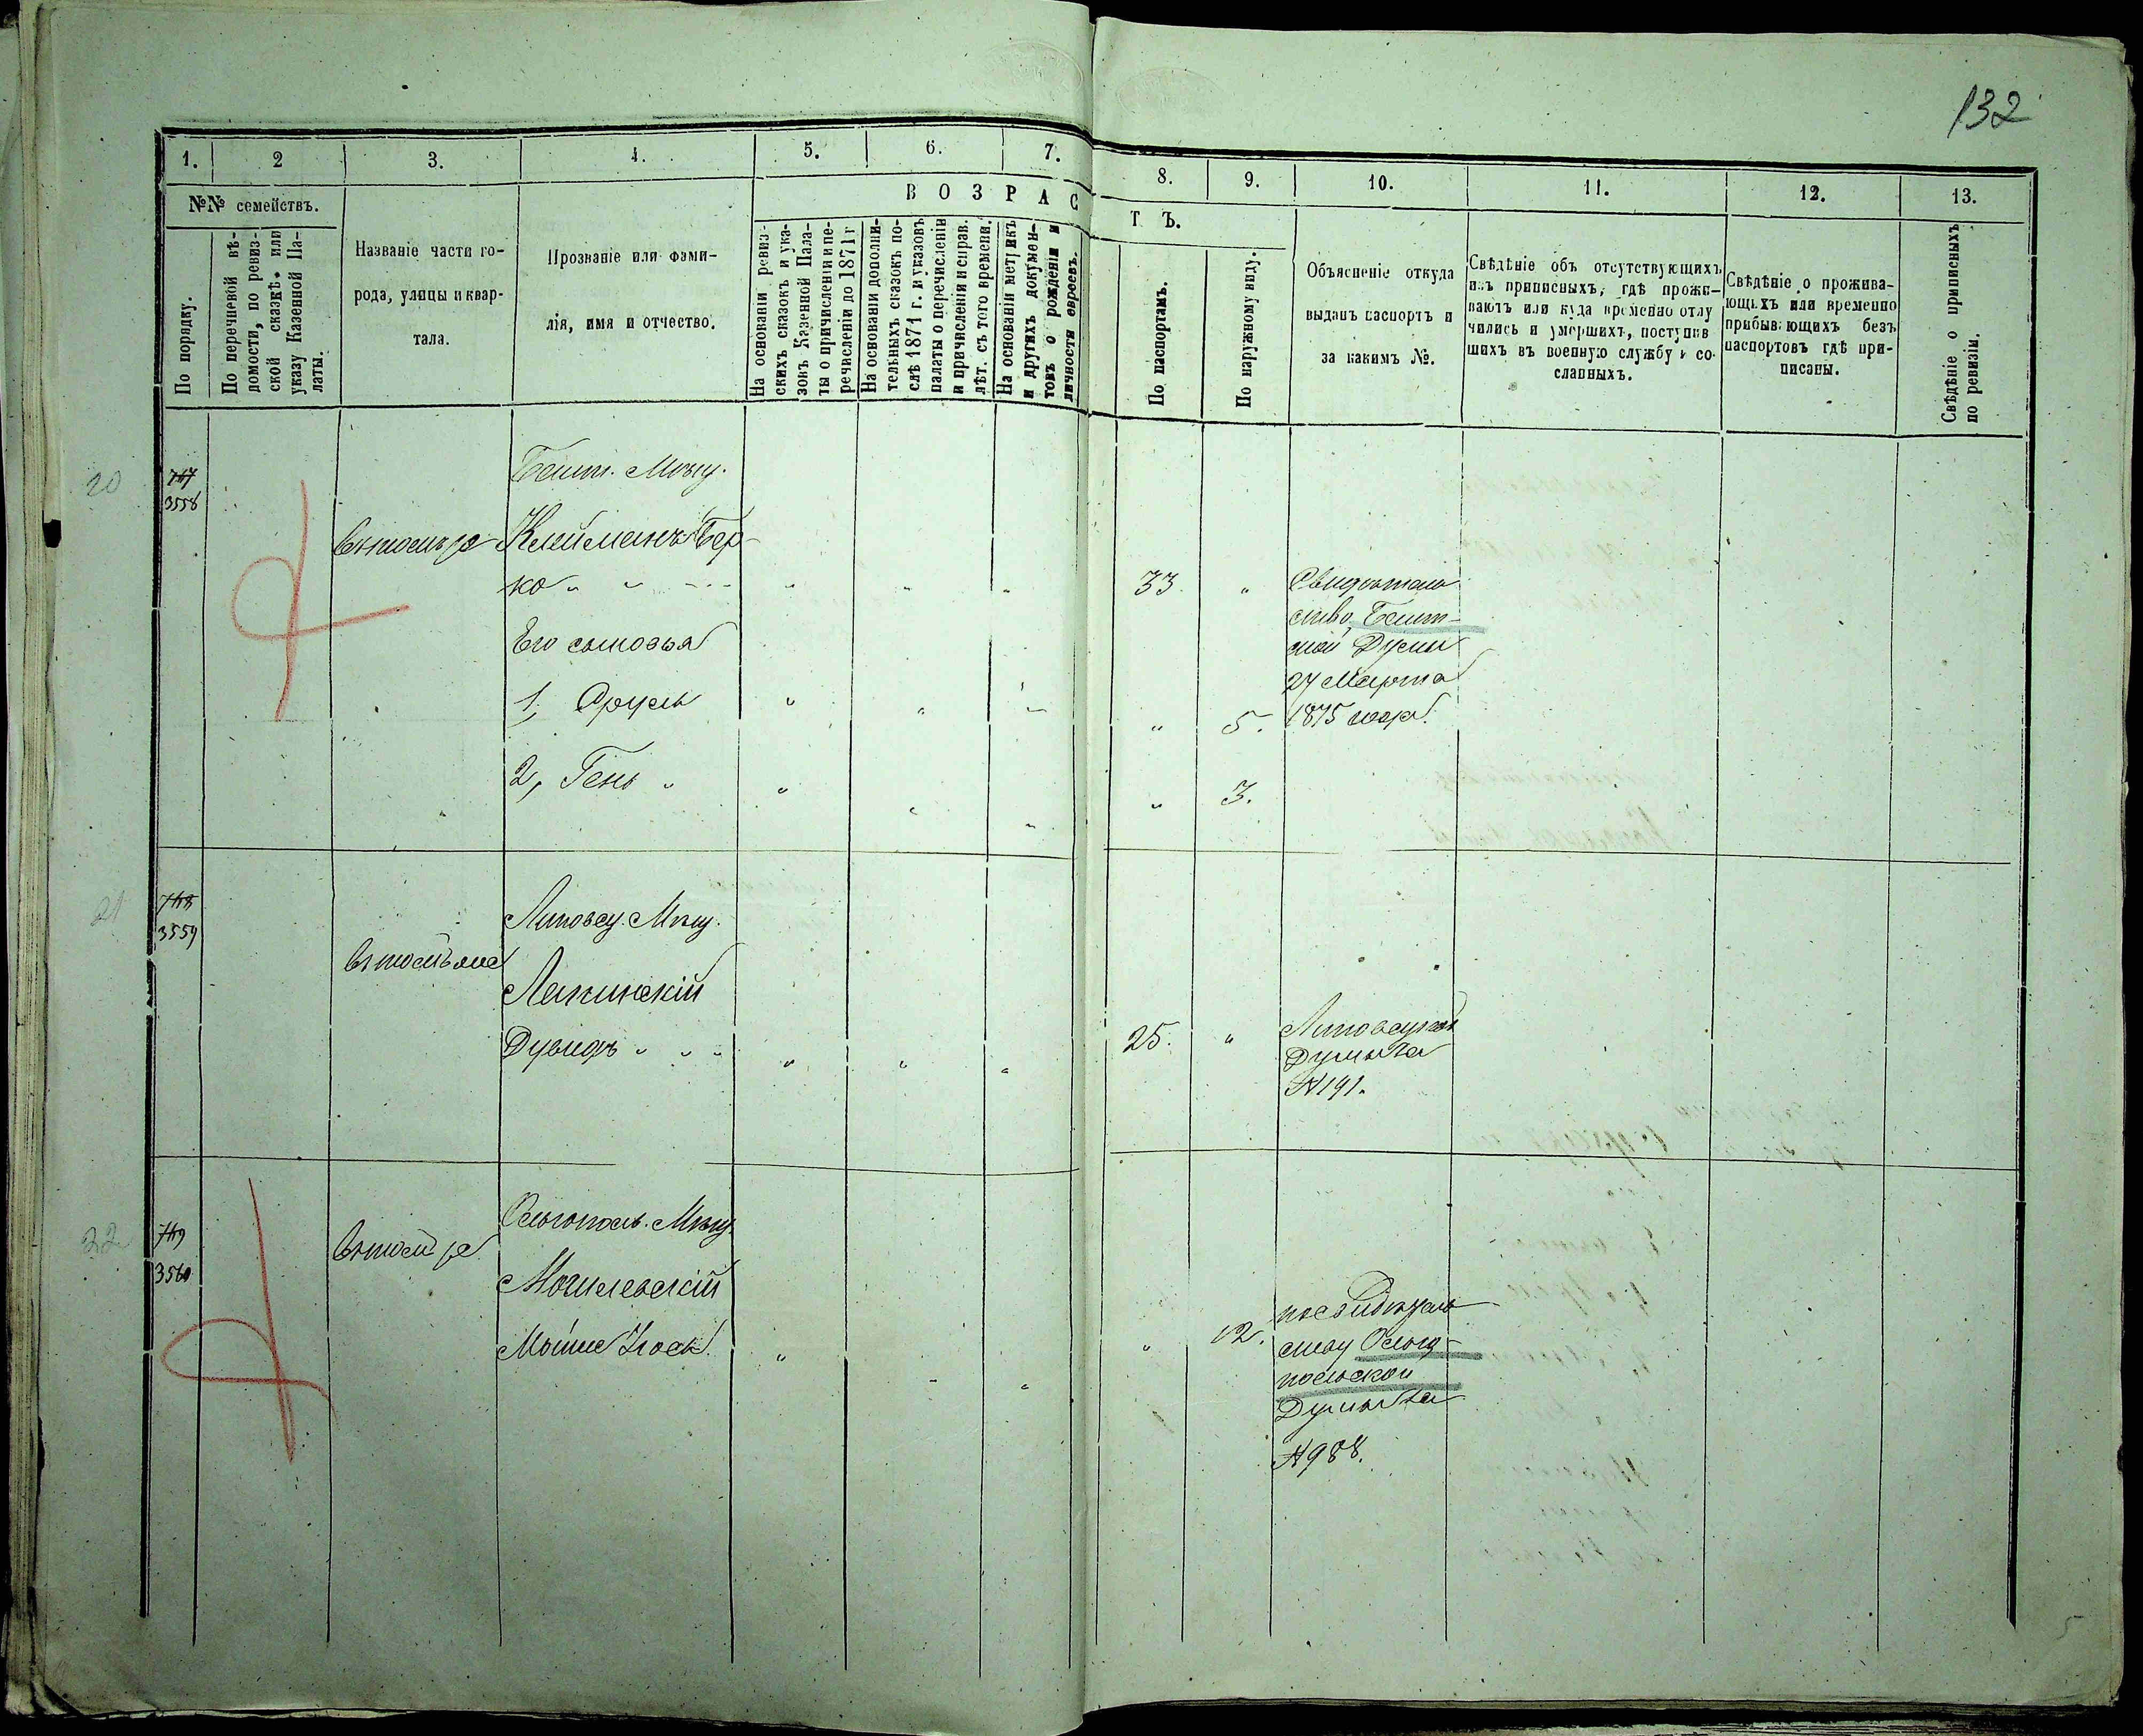 132
1. 2 3. 4. 5. 6. 7. 8. 9. 10. 11. 12. 13.
№№ семействъ.
По порядку.
По перечневой вѣ-
домости, по ревиз-
ской сказкѣ или
указу Казенной Па-
латы.
Названіе части го-
рода, улицы и квар-
тала.
Прозваніе или фами-
лія, имя и отчество.
ВОЗРАСТЪ.
На основаніи ревиз-
скихъ сказокъ и ука-
зовъ Казенной Пала-
ты о причисленіи и пе-
речисленіи до 1871 г
На основаніи дополни-
тельныхъ сказокъ по-
слѣ 1871 г. и указовъ
палаты о перечисленіи
и причисленіи и справ.
лѣт. съ того времени.
На основаніи метрикъ
и другихъ докумен-
товъ о рожденіи и
личности евреевъ.
По паспортамъ.
По наружному виду.
Объясненіе откуда
выданъ паспортъ и
за какимъ №.
Свѣдѣніе объ отсутствующихъ
изъ приписныхъ, гдѣ прожи-
ваютъ или куда временно отлу
чились и умершихъ, поступив
шихъ въ военную службу и со-
сланныхъ.
Свѣдѣніе о прожива-
ющихъ или временно
прибывающихъ безъ
паспортовъ гдѣ при-
писаны.
Свѣдѣніе о приписныхъ
по ревизіи.
20
3558
Мѣщ.
Клейманъ Бер-
ко
33
Его сыновья
1, Сруль
5.
2, Гень
3.
Свидѣтель
ство
ной Думы
27 Марта
1875 года
21
3559
Липовец. Мѣщ.
Дувидъ
25.
Липовецкой
Думы за
№191.
22
3560
Ольгопол. Мѣщ.
Могилевскій
Мойше Іосъ
12.
Ольго-
польской
Думы за
№988.